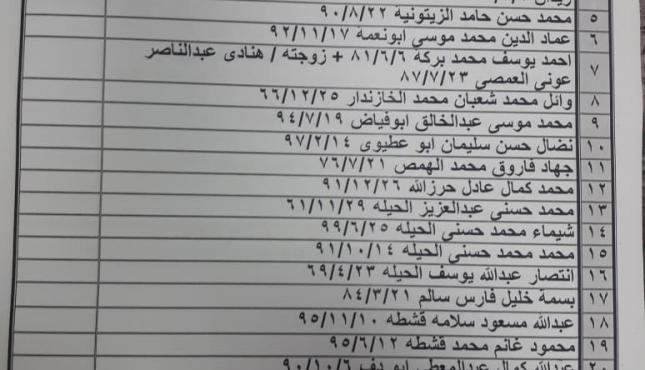 زيدان
٥ محمد حسن حامد الزيتونية ٩٠/٨/٢٢
٦ عماد الدين محمد موسى ابونعمة ٩٢/١١/١٧
٧ احمد يوسف محمد بركة ٨١/٦/٦ + زوجته / هنادى عبدالناصر
عوني العمصي ٨٧/٧/٢٣
٨ وائل محمد شعبان محمد الخازندار ٦٦/١٢/٢٥
٩ محمد موسى عبدالخالق ابوفياض ٩٤/٧/١٩
١٠ نضال حسن سليمان ابو عطيوى ٩٧/٢/١٤
١١ جهاد فاروق محمد الهمص ٧٦/٧/٢١
١٢ محمد كمال عادل حرزالله ٩١/١٢/٢٦
١٣ محمد حسني عبدالعزيز الحيله ٦١/١١/٢٩
١٤ شيماء محمد حسني الحيله ٩٩/٦/٢٥
١٥ محمد محمد حسني الحيله ٩١/١٠/١٤
١٦ انتصار عبدالله يوسف الحيله ٦٩/٤/٢٣
١٧ بسمة خليل فارس سالم ٨٤/٣/٢١
١٨ عبدالله مسعود سلامه قشطه ٩٥/١١/١٠
١٩ محمود غانم محمد قشطه ٩٥/٦/١٢
٢٠ عبدالله كمال عبدالمعطي ابو دف ٩٠/١٠/٦